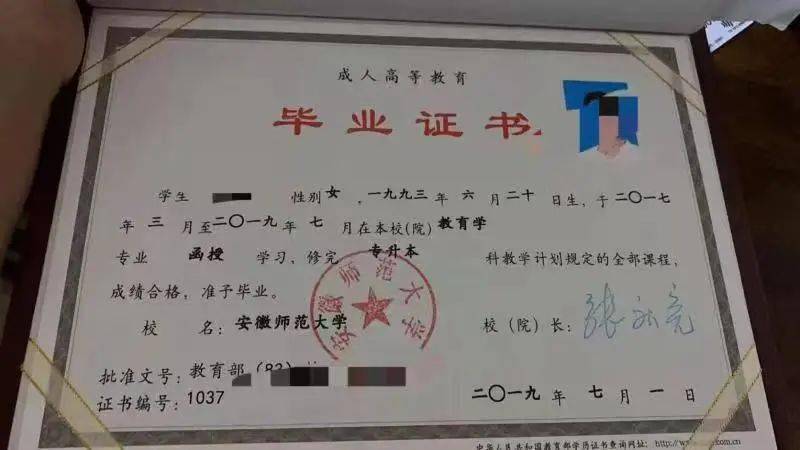 成人高等教育
毕业证书
学生 性别 女 ，一九九三 年 六 月 二十 日生，于 二〇一七
年 三 月至 二〇一九 年 七 月在本校(院) 教育学
专业 函授 学习，修完 专升本 科教学计划规定的全部课程，
成绩合格，准予毕业。
校 名：安徽师范大学
校（院）长：
安徽师范大学
批准文号：教育部
证书编号：1037
二〇一九 年 七 月 一 日
中华人民共和国教育部学历证书查询网址：http://w